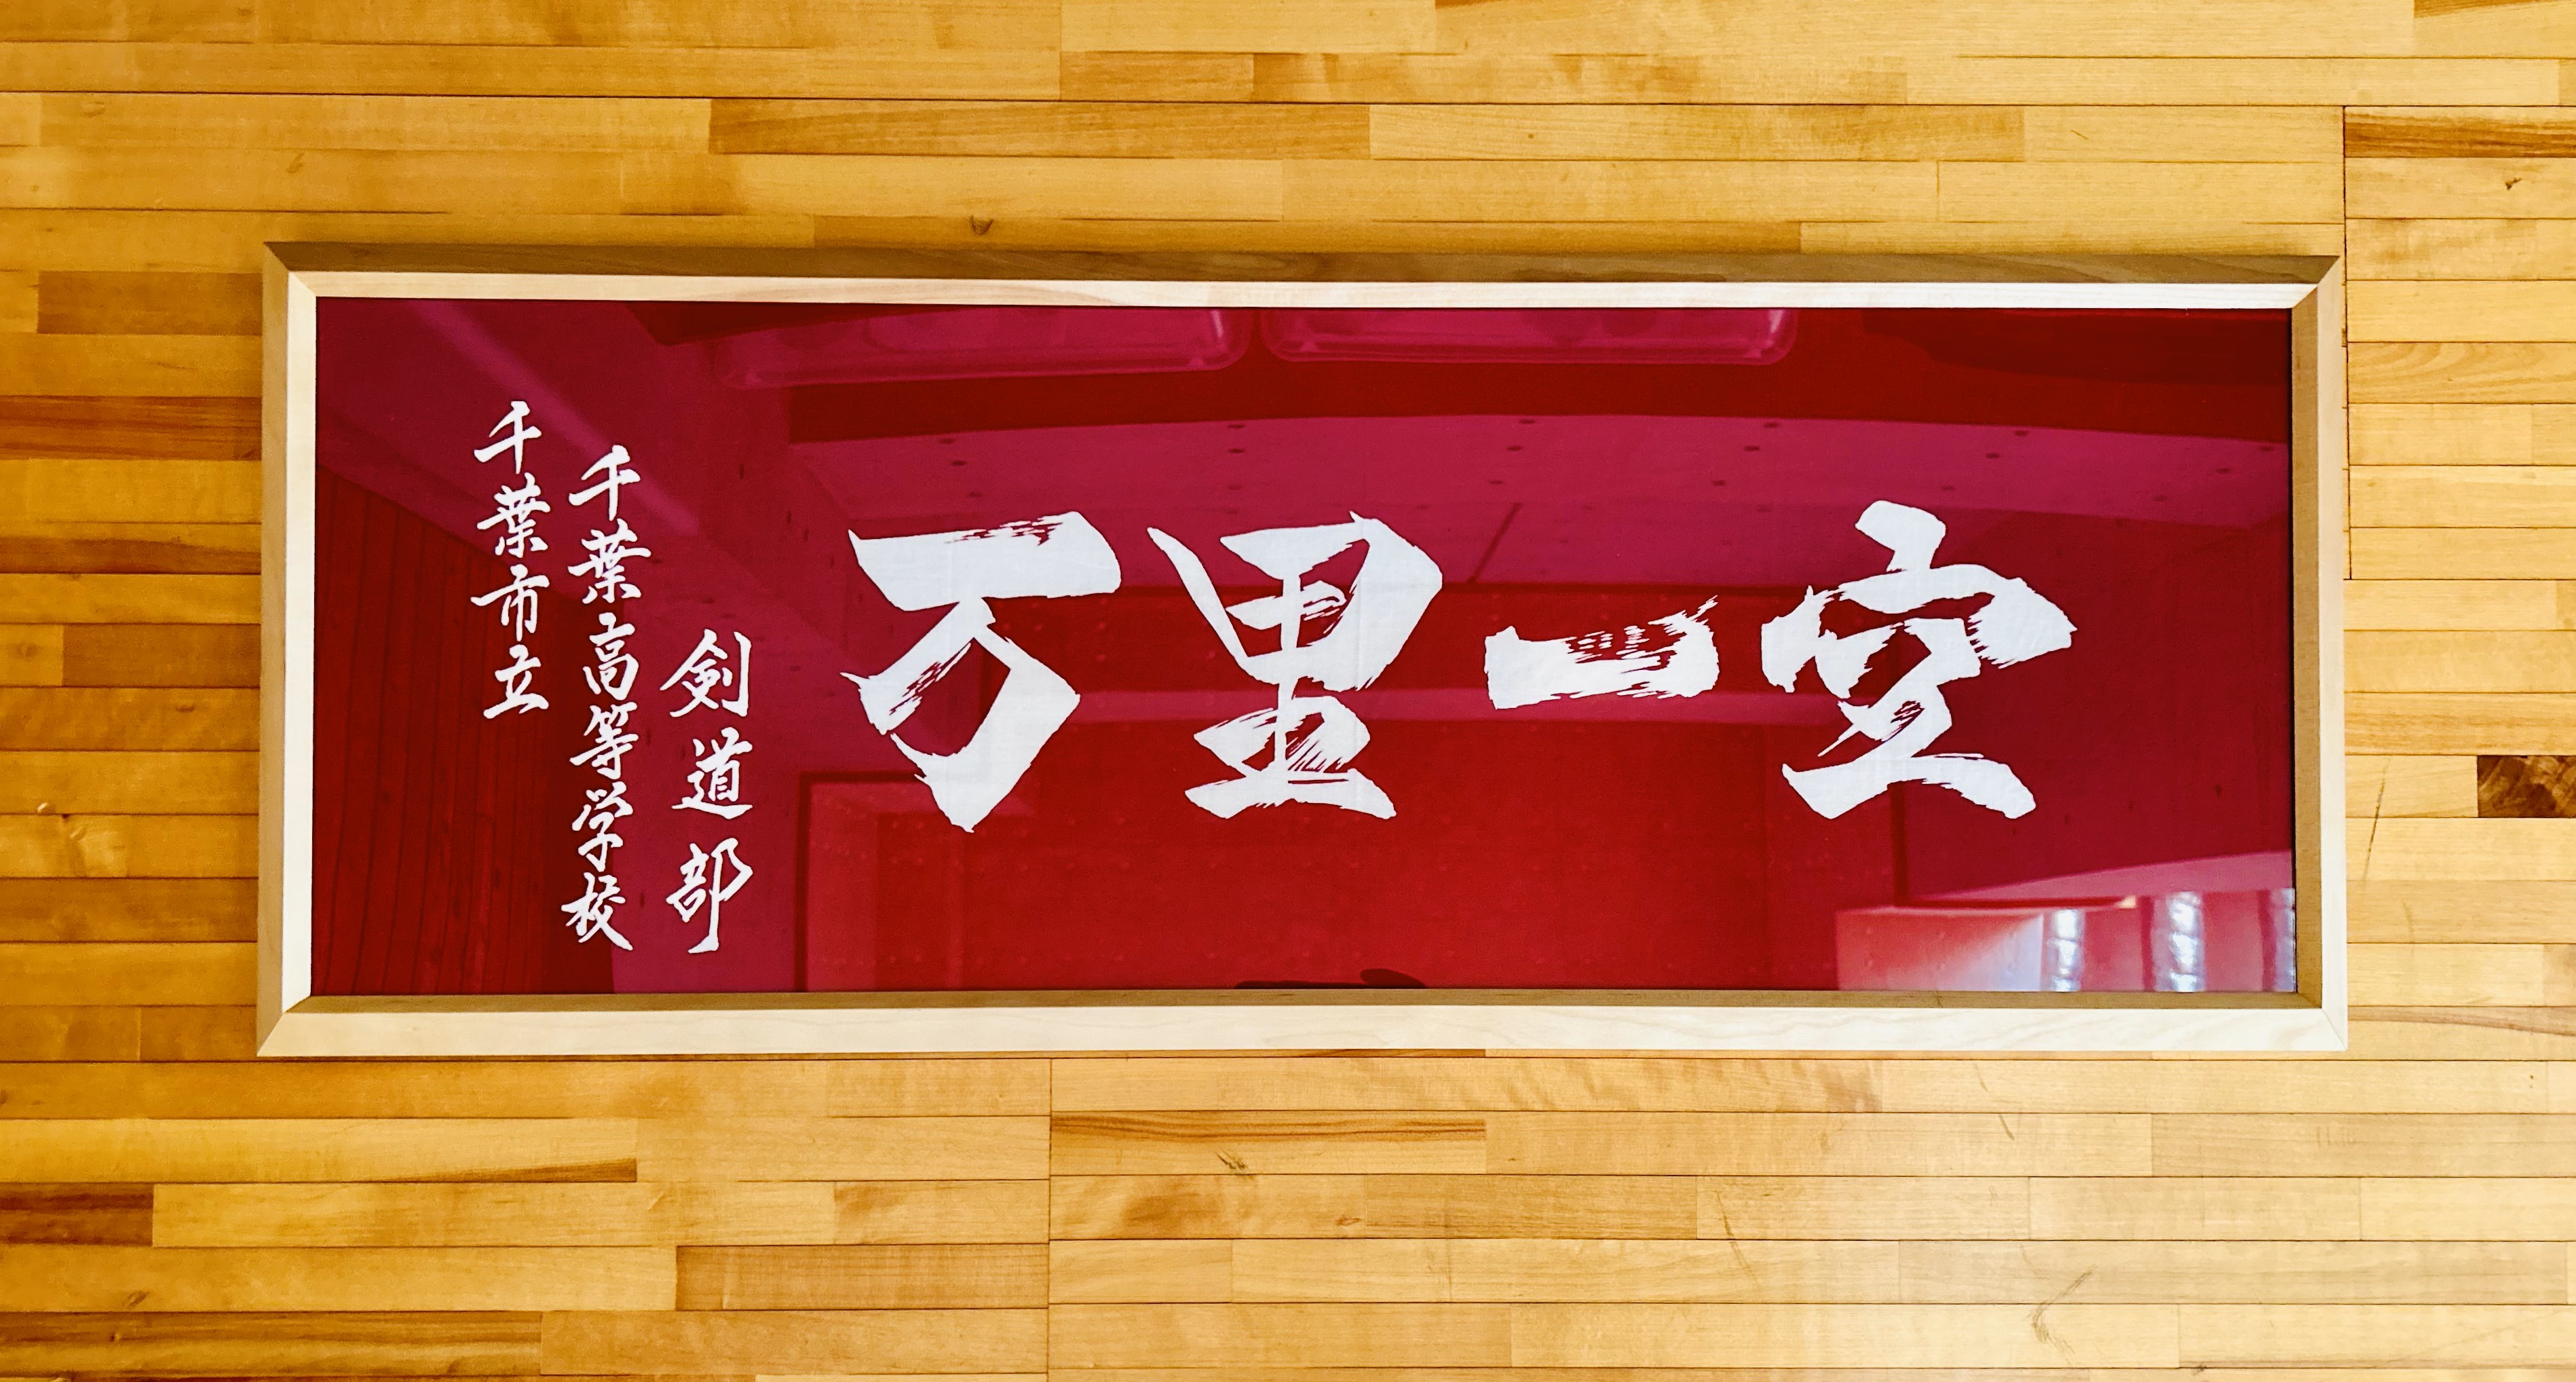 千葉市立
千葉高等学校
剣道部
万里一空